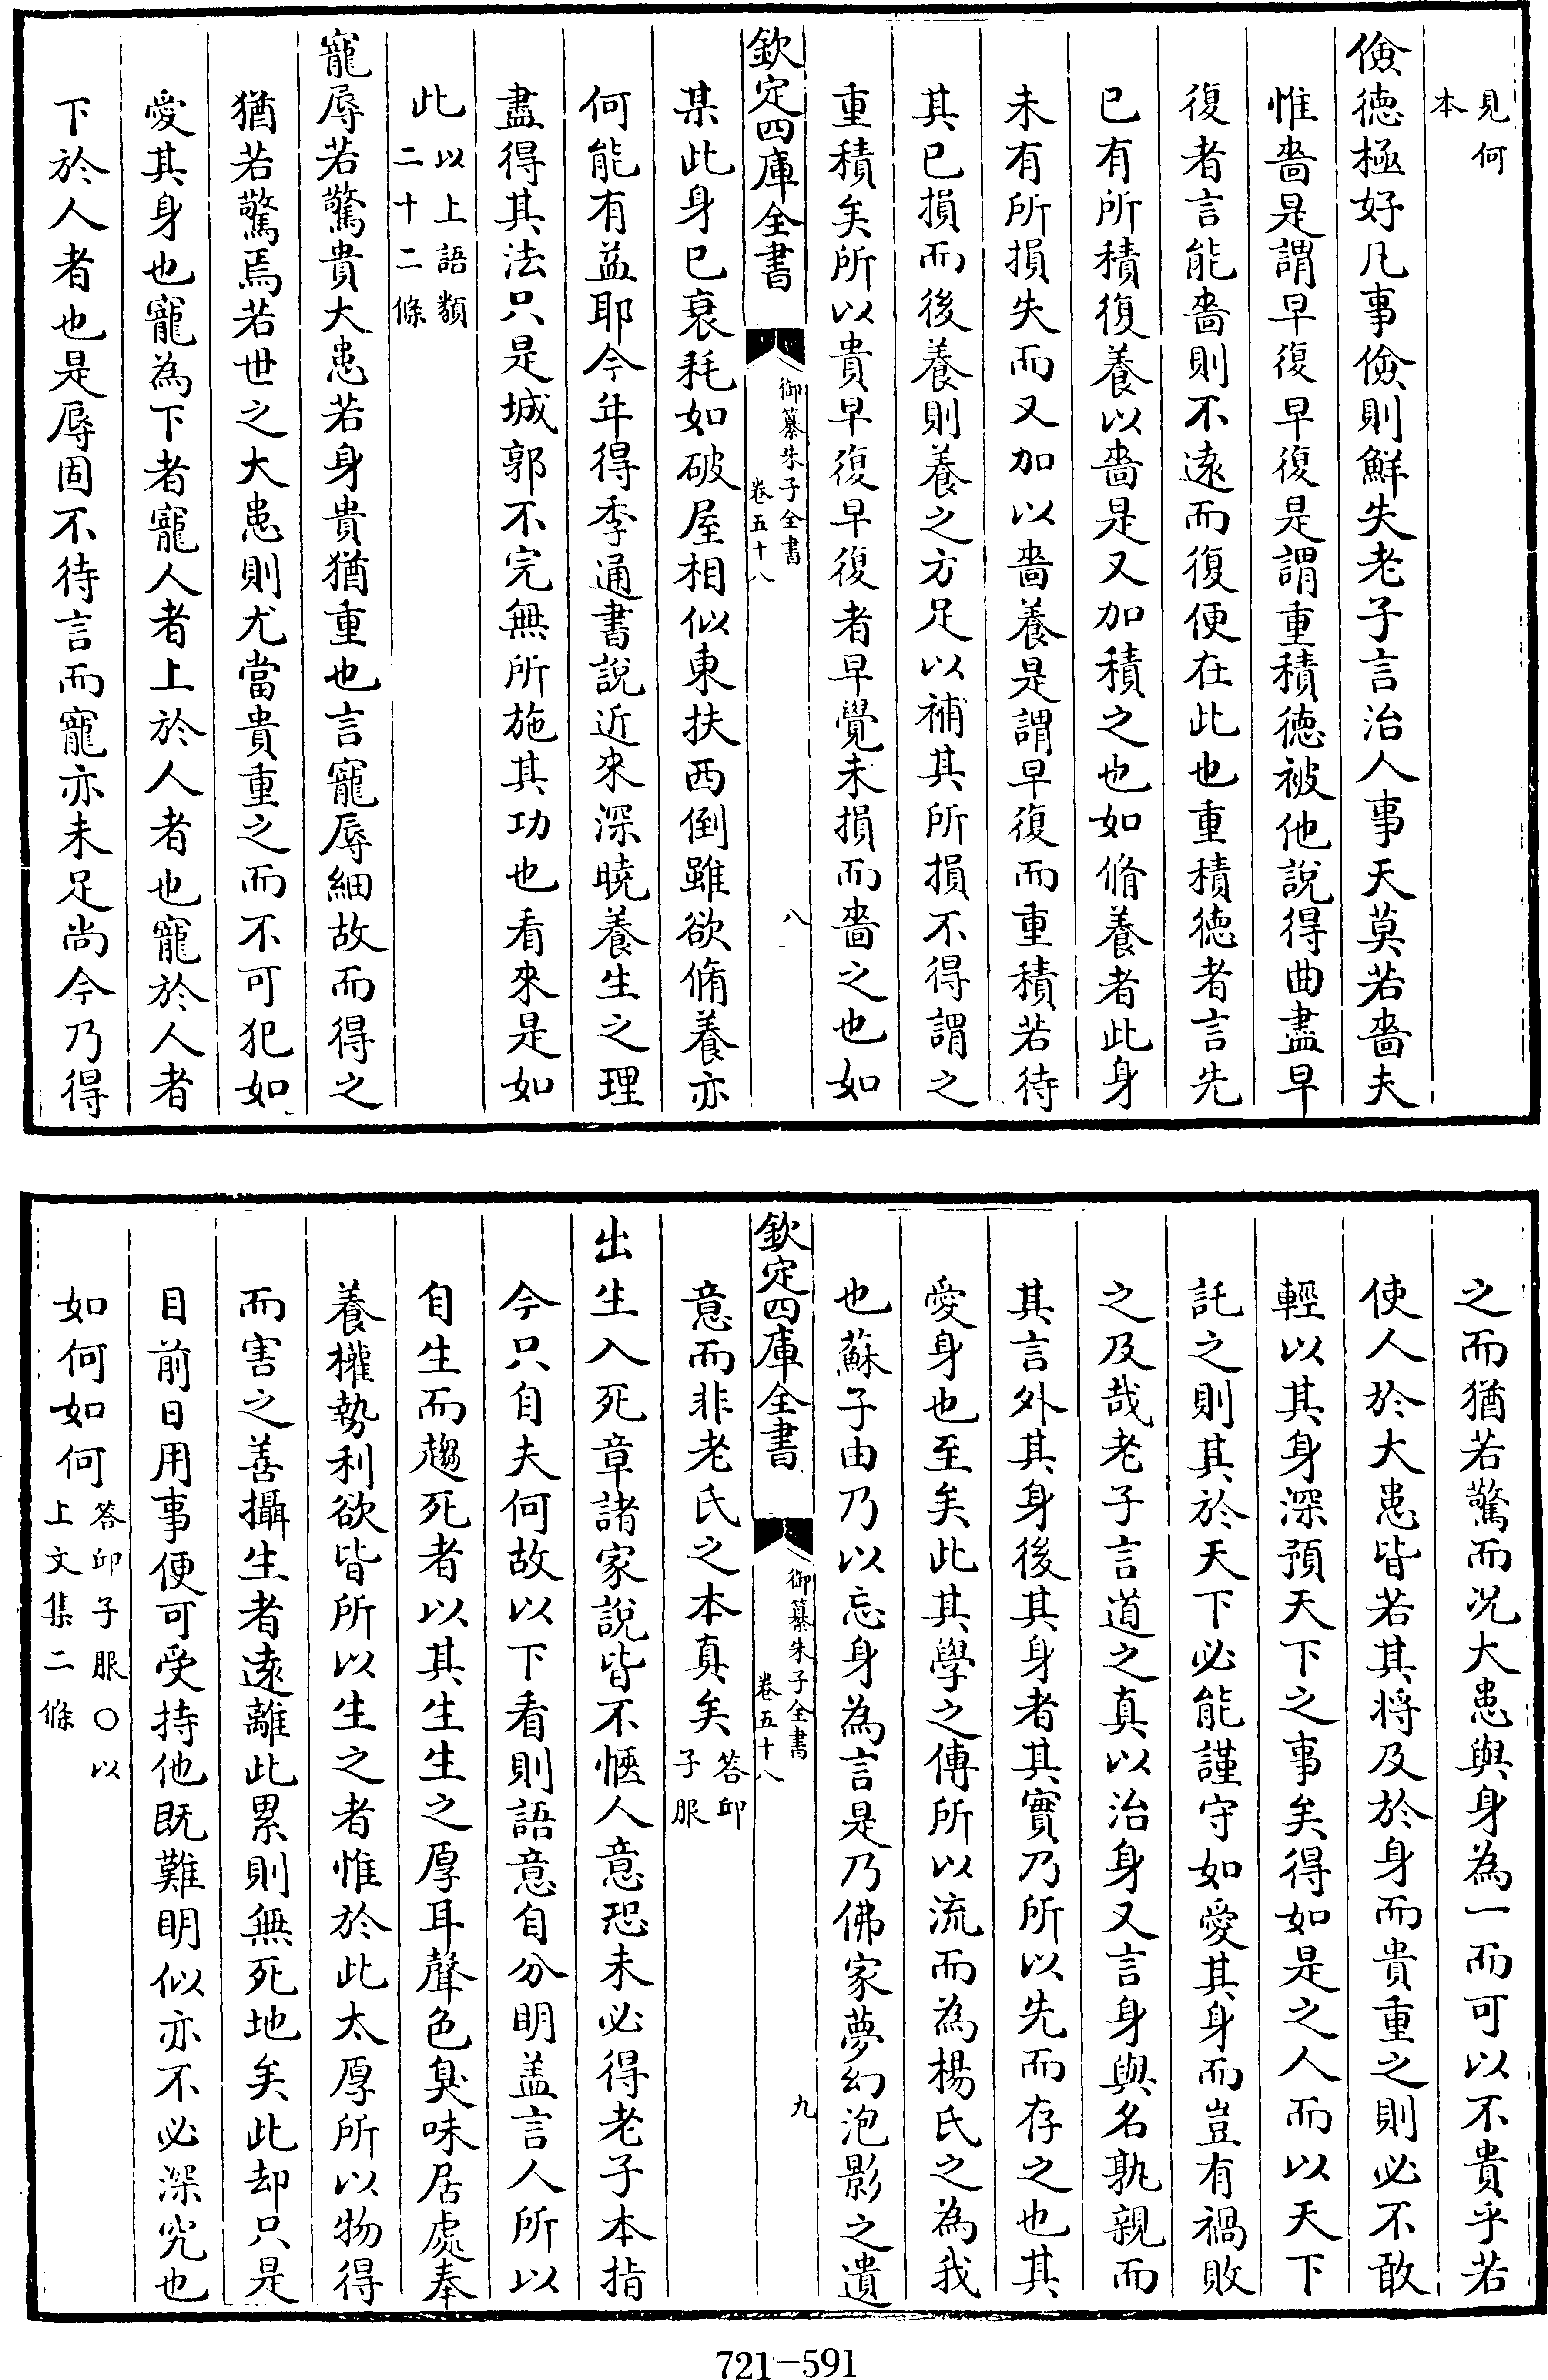 見何
本
儉德極好凡事儉則鮮失老子言治人事天莫若嗇夫
惟嗇是謂早復早復是謂重積德被他說得曲盡早
復者言能嗇則不逺而復便在此也重積德者言先
已有所積復養以嗇是又加積之也如脩養者此身
未有所損失而又加以嗇養是謂早復而重積若待
其已損而後養則養之方足以補其所損不得謂之
重積矣所以貴早復早復者早覺未損而嗇之也如
欽定四庫全書
御纂朱子全書
卷五十八
八
某此身已衰耗如破屋相似東扶西倒雖欲脩養亦
何能有益耶今年得季通書說近來深曉養生之理
盡得其法只是城郭不完無所施其功也看來是如
此
以上語類
二十二條
寵辱若驚貴大患若身貴猶重也言寵辱細故而得之
猶若驚焉若世之大患則尤當貴重之而不可犯如
愛其身也寵為下者寵人者上於人者也寵於人者
下於人者也是辱固不待言而寵亦未足尚今乃得
之而猶若驚而况大患與身為一而可以不貴乎若
使人於大患皆若其將及於身而貴重之則必不敢
輕以其身深預天下之事矣得如是之人而以天下
託之則其於天下必能謹守如愛其身而豈有禍敗
之及哉老子言道之真以治身又言身與名孰親而
其言外其身後其身者其實乃所以先而存之也其
愛身也至矣此其學之傳所以流而為楊氏之為我
也蘇子由乃以忘身為言是乃佛家夢幻泡影之遺
欽定四庫全書
御纂朱子全書
卷五十八
九
意而非老氏之本真矣
答邱
子服
出生入死章諸家說皆不愜人意恐未必得老子本指
今只自夫何故以下看則語意自分明盖言人所以
自生而趨死者以其生生之厚耳聲色臭味居處奉
養權勢利欲皆所以生之者惟於此太厚所以物得
而害之善攝生者逺離此累則無死地矣此却只是
目前日用事便可受持他既難明似亦不必深究也
如何如何
答邱子服○以
上文集二條
721—591